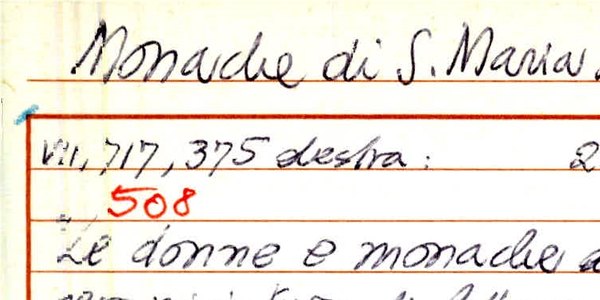 Monache di S. Maria
VII, 717, 375 destra: 2
508
Le donne e monache